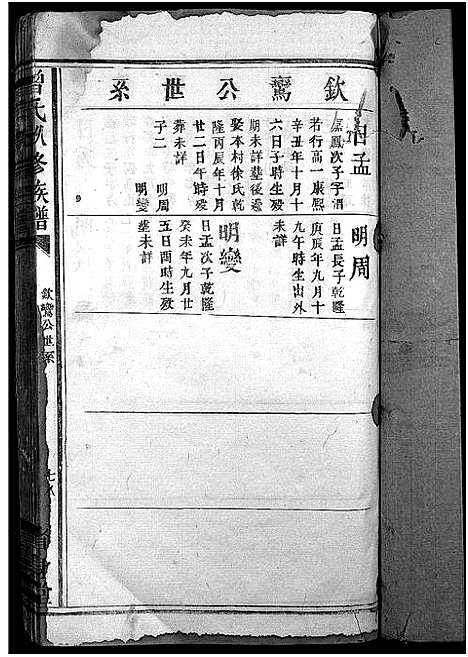 欽鸞公世系
日孟
鳳次子字泗
若行高一康熙
辛丑年十月十
六日子時生歿
期未詳墓後遷
娶本村徐氏乾
隆丙辰年十月
廿二日午時歿
葬未詳
子二 明周
明變
明周
日孟長子乾隆
庚辰年九月十
九午時生出外
未詳
明變
日孟次子乾隆
癸未年九月廿
五日酉時生歿
塟未詳
曾氏八修族譜
欽鸞公世系